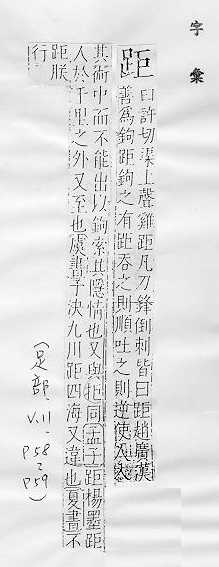 字彙
距
臼許切渠上聲雞距凡刀鋒倒刺皆曰距趙廣漢
善爲鉤距鉤之有距吞之則順吐之則逆使人入
其術中而不能出以鉤索其隱情也又與拒同孟子距楊墨距
人於千里之外又至也虞書予決九川距四海又違也夏書不
距朕
行
(足部、V.11-P58~P59)